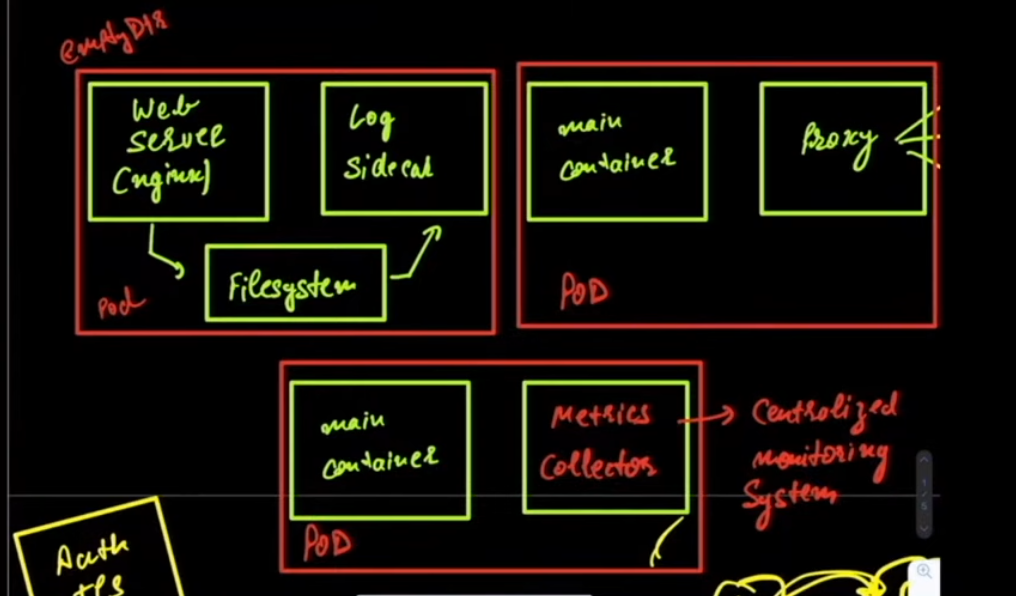 emptyDIR
Web
Server
(nginx)
Log
Sidecar
Filesystem
Pod
main
container
Proxy
POD
main
container
Metrics
Collector
POD
Centralized
monitoring
System
Auth
1
6